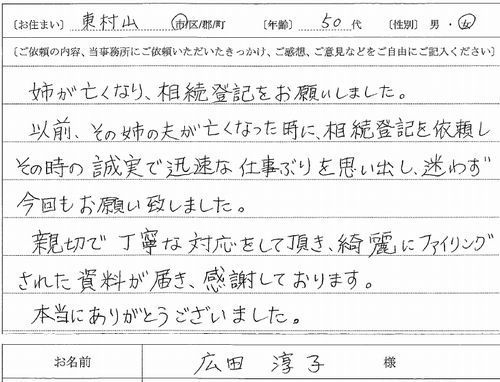 ［お住まい］ 東村山 市/区/郡/町 ［年齢］ 50 代 ［性別］ 男・女
［ご依頼の内容、当事務所にご依頼いただいたきっかけ、ご感想、ご意見などをご自由にご記入ください］
姉が亡くなり、相続登記をお願いしました。
以前、その姉の夫が亡くなった時に、相続登記を依頼し
その時の誠実で迅速な仕事ぶりを思い出し、迷わず
今回もお願い致しました。
親切で丁寧な対応をして頂き、綺麗にファイリング
された資料が届き、感謝しております。
本当にありがとうございました。
お名前 広田 淳子 様